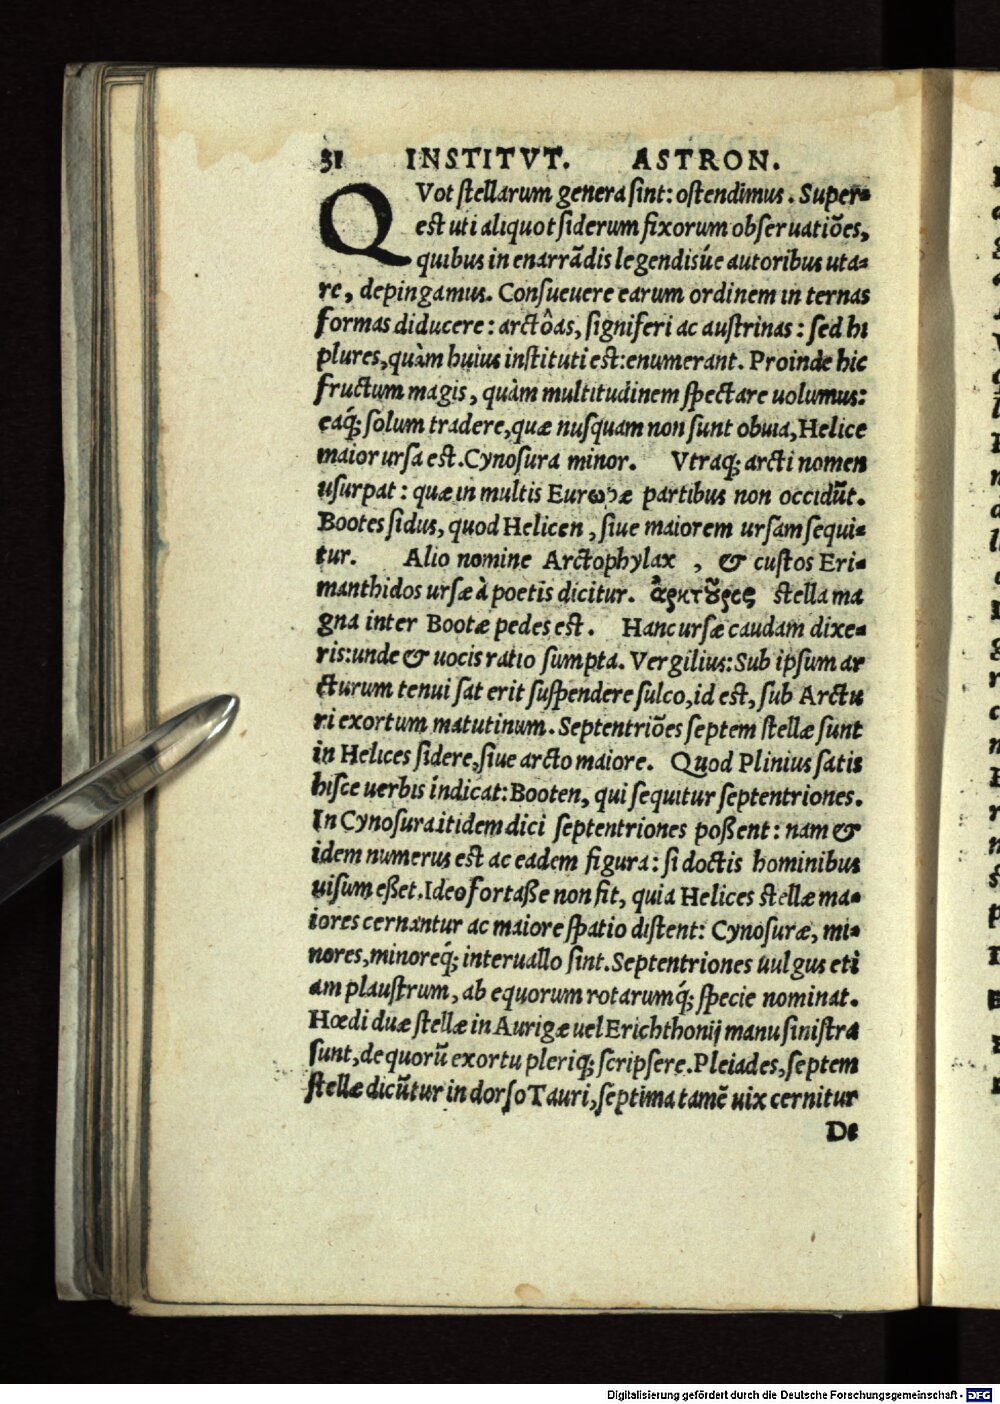 31 INSTITVT. ASTRON.
QVot ſtellarum genera ſint: oſtendimus. Super-
eſt uti aliquot ſiderum fixorum obſeruatiões,
quibus in enarrādis legendisúe autoribus uta-
re, depingamus. Conſueuere earum ordinem in ternas
formas diducere: arctôas, ſigniferi ac auſtrinas: ſed hi
plures, quàm huius inſtituti eſt: enumerant. Proinde hic
fructum magis, quàm multitudinem ſpectare uolumus:
eaq́; ſolum tradere, quæ nuſquam non ſunt obuia, Helice
maior urſa eſt. Cynoſura minor. Vtraq; arcti nomen
uſurpat: quæ in multis Eurωpæ partibus non occidūt.
Bootes ſidus, quod Helicen, ſiue maiorem urſam ſequi-
tur. Alio nomine Arctophylax, & cuſtos Eri-
manthidos urſæ à poetis dicitur. ἀρκτȣ̃ρες ſtella ma
gna inter Bootæ pedes eſt. Hanc urſæ caudam dixe-
ris: unde & uocis ratio ſumpta. Vergilius: Sub ipſum ar
cturum tenui ſat erit ſuſpendere ſulco, id eſt, ſub Arctu
ri exortum matutinum. Septentriões ſeptem ſtellæ ſunt
in Helices ſidere, ſiue arcto maiore. Quod Plinius ſatis
hiſce uerbis indicat: Booten, qui ſequitur ſeptentriones.
In Cynoſura itidem dici ſeptentriones poßent: nam &
idem numerus eſt ac eadem figura: ſi doctis hominibus
uiſum eßet. Ideo fortaße non fit, quia Helices ſtellæ ma-
iores cernantur ac maiore ſpatio diſtent: Cynoſuræ, mi-
nores, minoreq́; interuallo ſint. Septentriones uulgus eti
am plauſtrum, ab equorum rotarumq́; ſpecie nominat.
Hœdi duæ ſtellæ in Aurigæ uel Erichthonij manu ſiniſtra
ſunt, de quorū exortu pleriq; ſcripſere. Pleiades, ſeptem
ſtellæ dicūtur in dorſo Tauri, ſeptima tamē uix cernitur
De
Digitalisierung gefördert durch die Deutsche Forschungsgemeinschaft - DFG